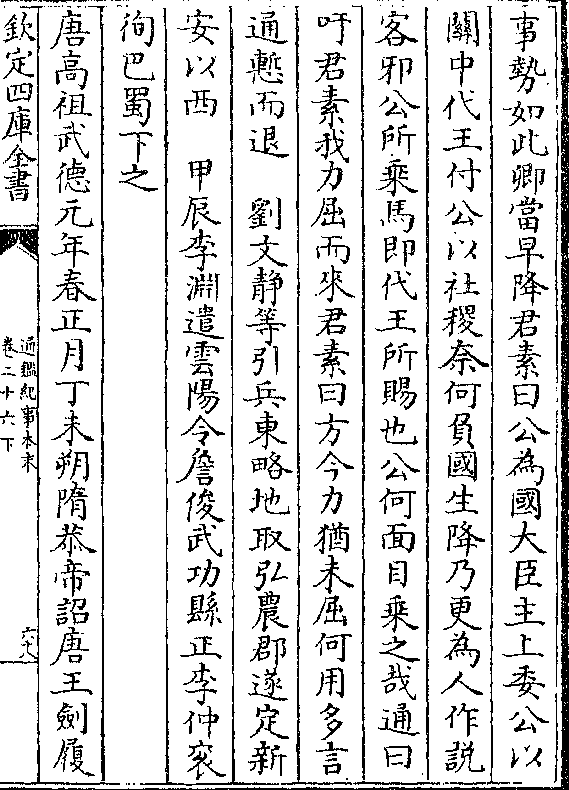 事勢如此卿當早降君素曰公為國大臣主上委公以
關中代王付公以社稷奈何負國生降乃更為人作說
客邪公所乘馬即代王所賜也公何面目乘之哉通曰
吁君素我力屈而來君素曰方今力猶未屈何用多言
通慙而退　劉文靜等引兵東略地取弘農郡遂定新
安以西　甲辰李淵遣雲陽令詹俊武功縣正李仲衮
徇巴蜀下之
唐高祖武德元年春正月丁未朔隋恭帝詔唐王劍履
欽定四庫全書
通鑑紀事本末
卷二十六下